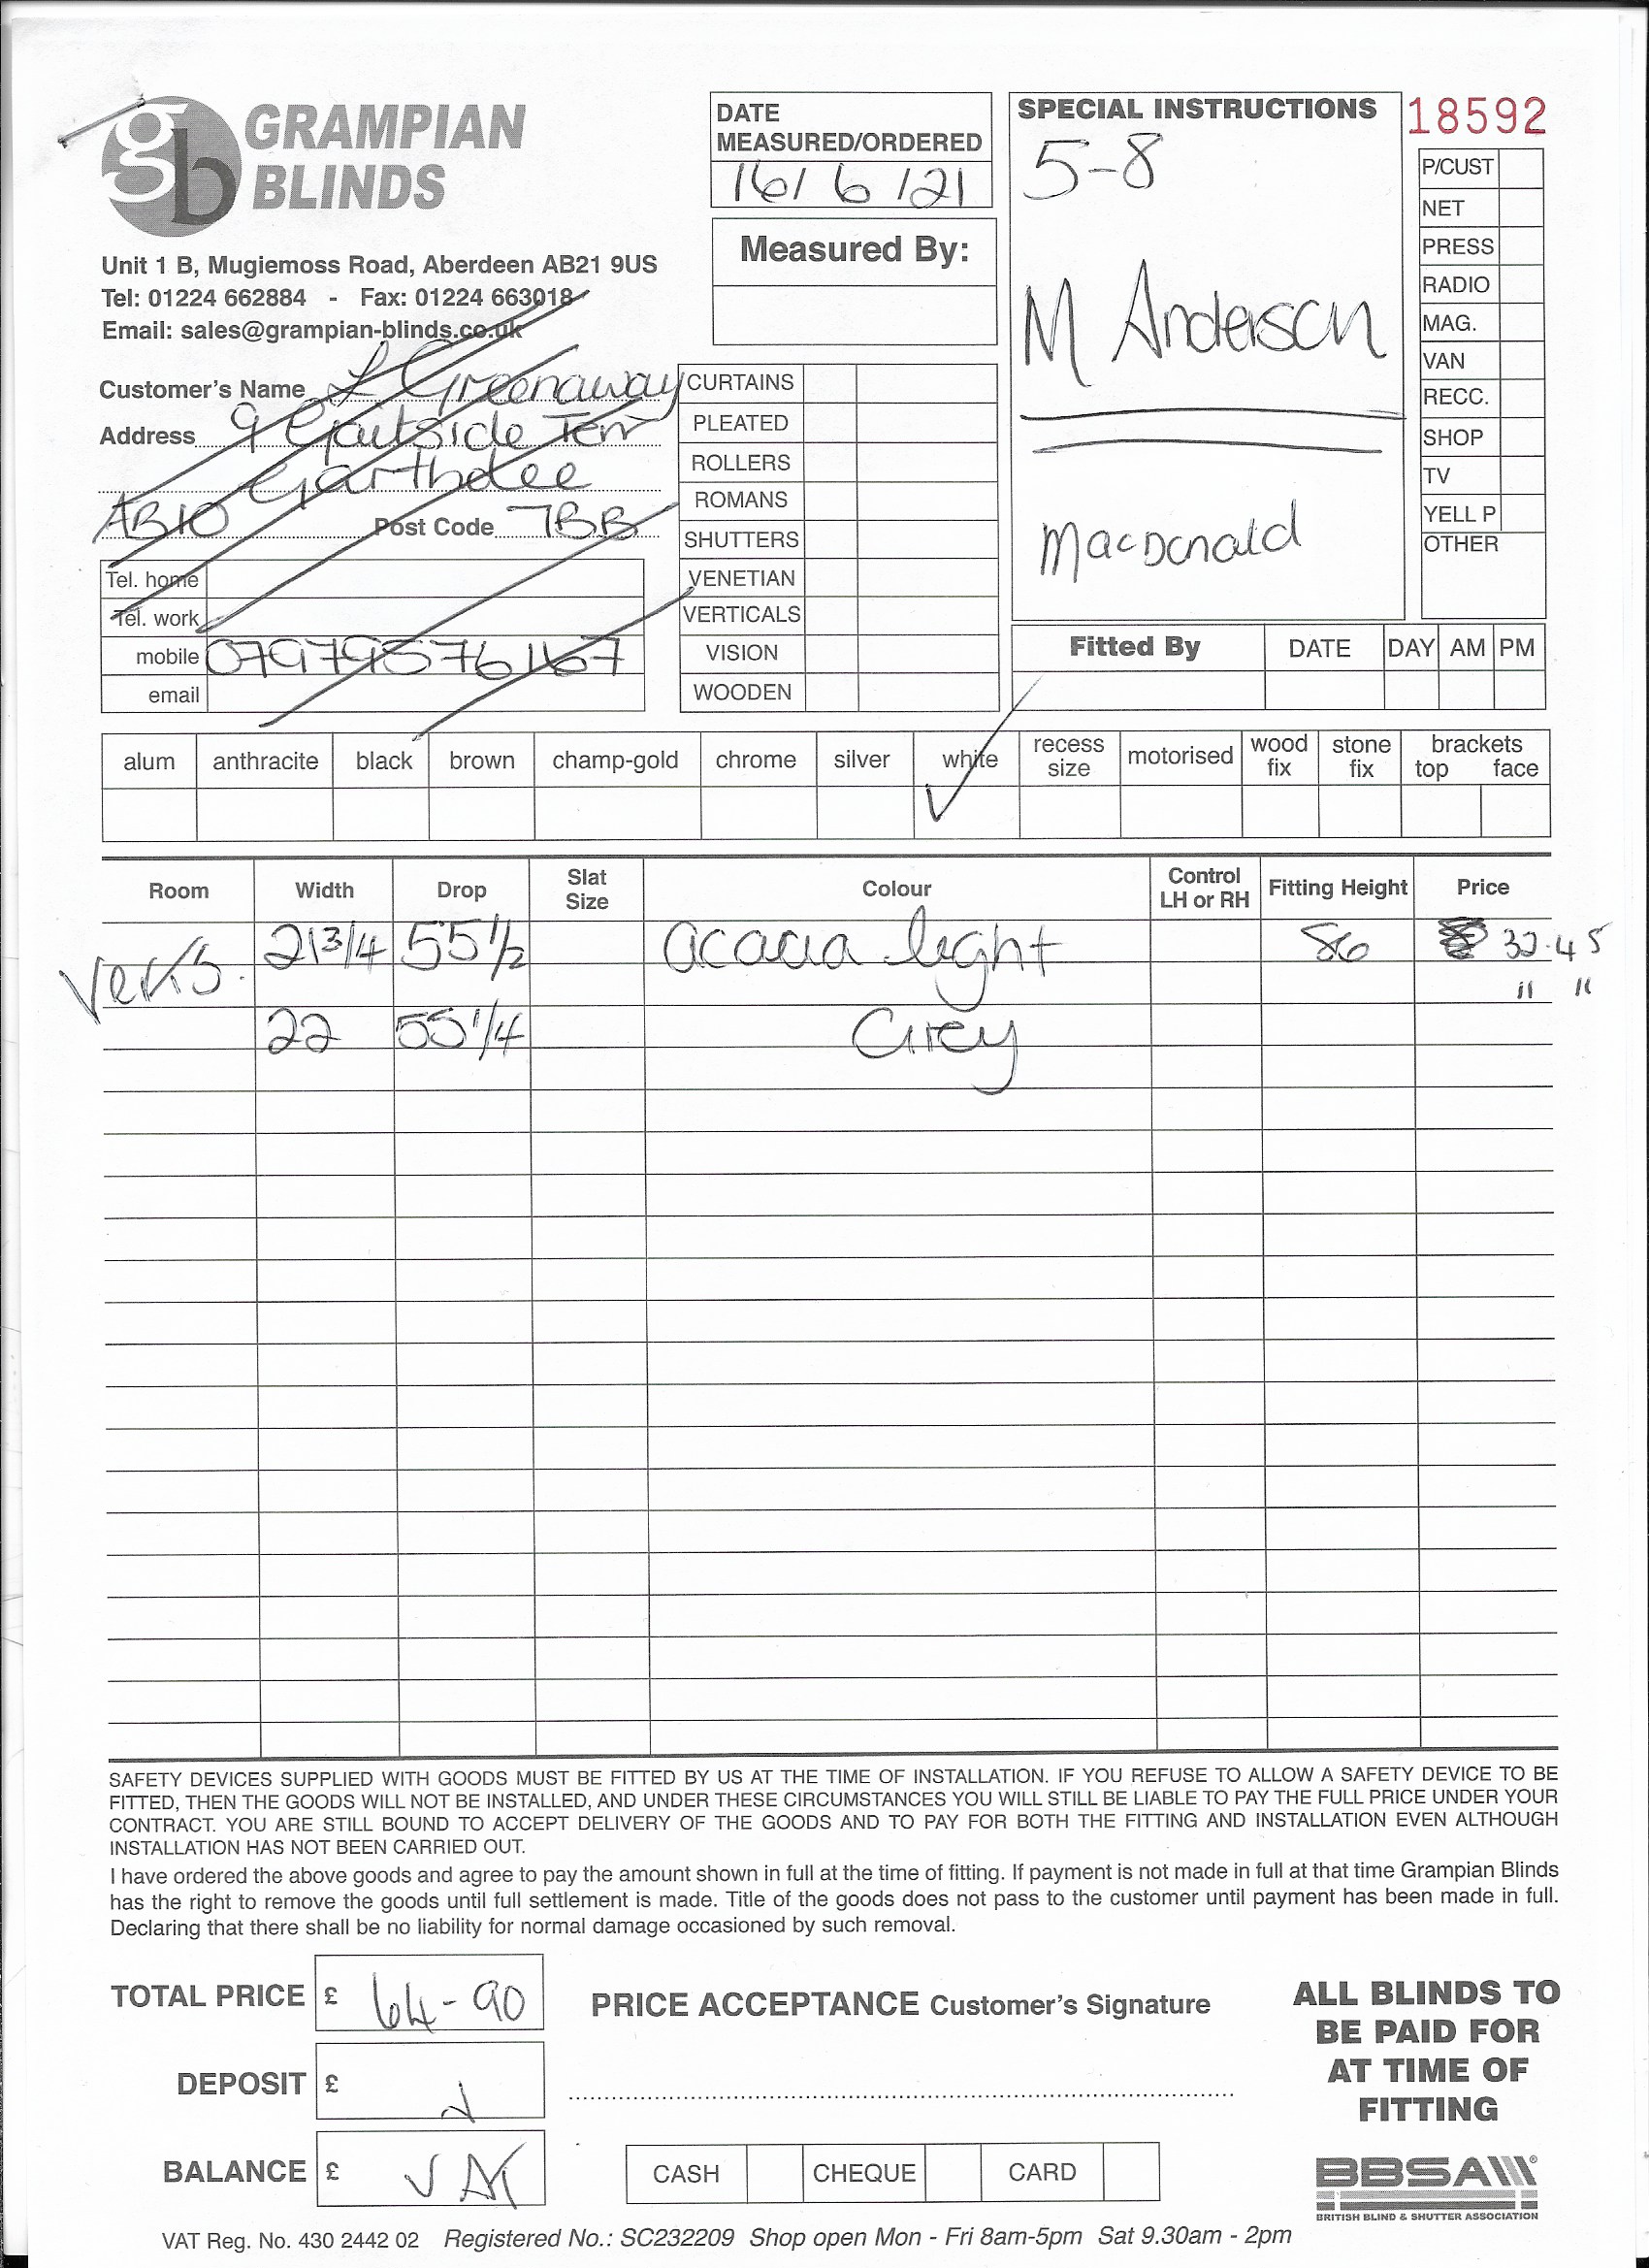 gb GRAMPIAN BLINDS
Unit 1 B, Mugiemoss Road, Aberdeen AB21 9US
Tel: 01224 662884 - Fax: 01224 663018
Email: sales@grampian-blinds.co.uk
Customer's Name L Greenaway
Address 9 Gaitside Terr
Garthdee
AB10 Post Code 7BB
Tel. home
Tel. work
mobile 07979576167
email
DATE
MEASURED/ORDERED
16/6/21
Measured By:
CURTAINS
PLEATED
ROLLERS
ROMANS
SHUTTERS
VENETIAN
VERTICALS
VISION
WOODEN
SPECIAL INSTRUCTIONS
5-8
M Anderson
MacDonald
18592
P/CUST
NET
PRESS
RADIO
MAG.
VAN
RECC.
SHOP
TV
YELL P
OTHER
Fitted By DATE DAY AM PM
alum anthracite black brown champ-gold chrome silver white recess size motorised wood fix stone fix brackets top face
Room Width Drop Slat Size Colour Control LH or RH Fitting Height Price
Verts. 21 3/4 55 1/2 acacia light 86 32.45
22 55 1/4 Grey " "
SAFETY DEVICES SUPPLIED WITH GOODS MUST BE FITTED BY US AT THE TIME OF INSTALLATION. IF YOU REFUSE TO ALLOW A SAFETY DEVICE TO BE
FITTED, THEN THE GOODS WILL NOT BE INSTALLED, AND UNDER THESE CIRCUMSTANCES YOU WILL STILL BE LIABLE TO PAY THE FULL PRICE UNDER YOUR
CONTRACT. YOU ARE STILL BOUND TO ACCEPT DELIVERY OF THE GOODS AND TO PAY FOR BOTH THE FITTING AND INSTALLATION EVEN ALTHOUGH
INSTALLATION HAS NOT BEEN CARRIED OUT.
I have ordered the above goods and agree to pay the amount shown in full at the time of fitting. If payment is not made in full at that time Grampian Blinds
has the right to remove the goods until full settlement is made. Title of the goods does not pass to the customer until payment has been made in full.
Declaring that there shall be no liability for normal damage occasioned by such removal.
TOTAL PRICE £ 64-90
DEPOSIT £
BALANCE £
PRICE ACCEPTANCE Customer's Signature
CASH CHEQUE CARD
ALL BLINDS TO
BE PAID FOR
AT TIME OF
FITTING
BBSA
BRITISH BLIND & SHUTTER ASSOCIATION
VAT Reg. No. 430 2442 02 Registered No.: SC232209 Shop open Mon - Fri 8am-5pm Sat 9.30am - 2pm